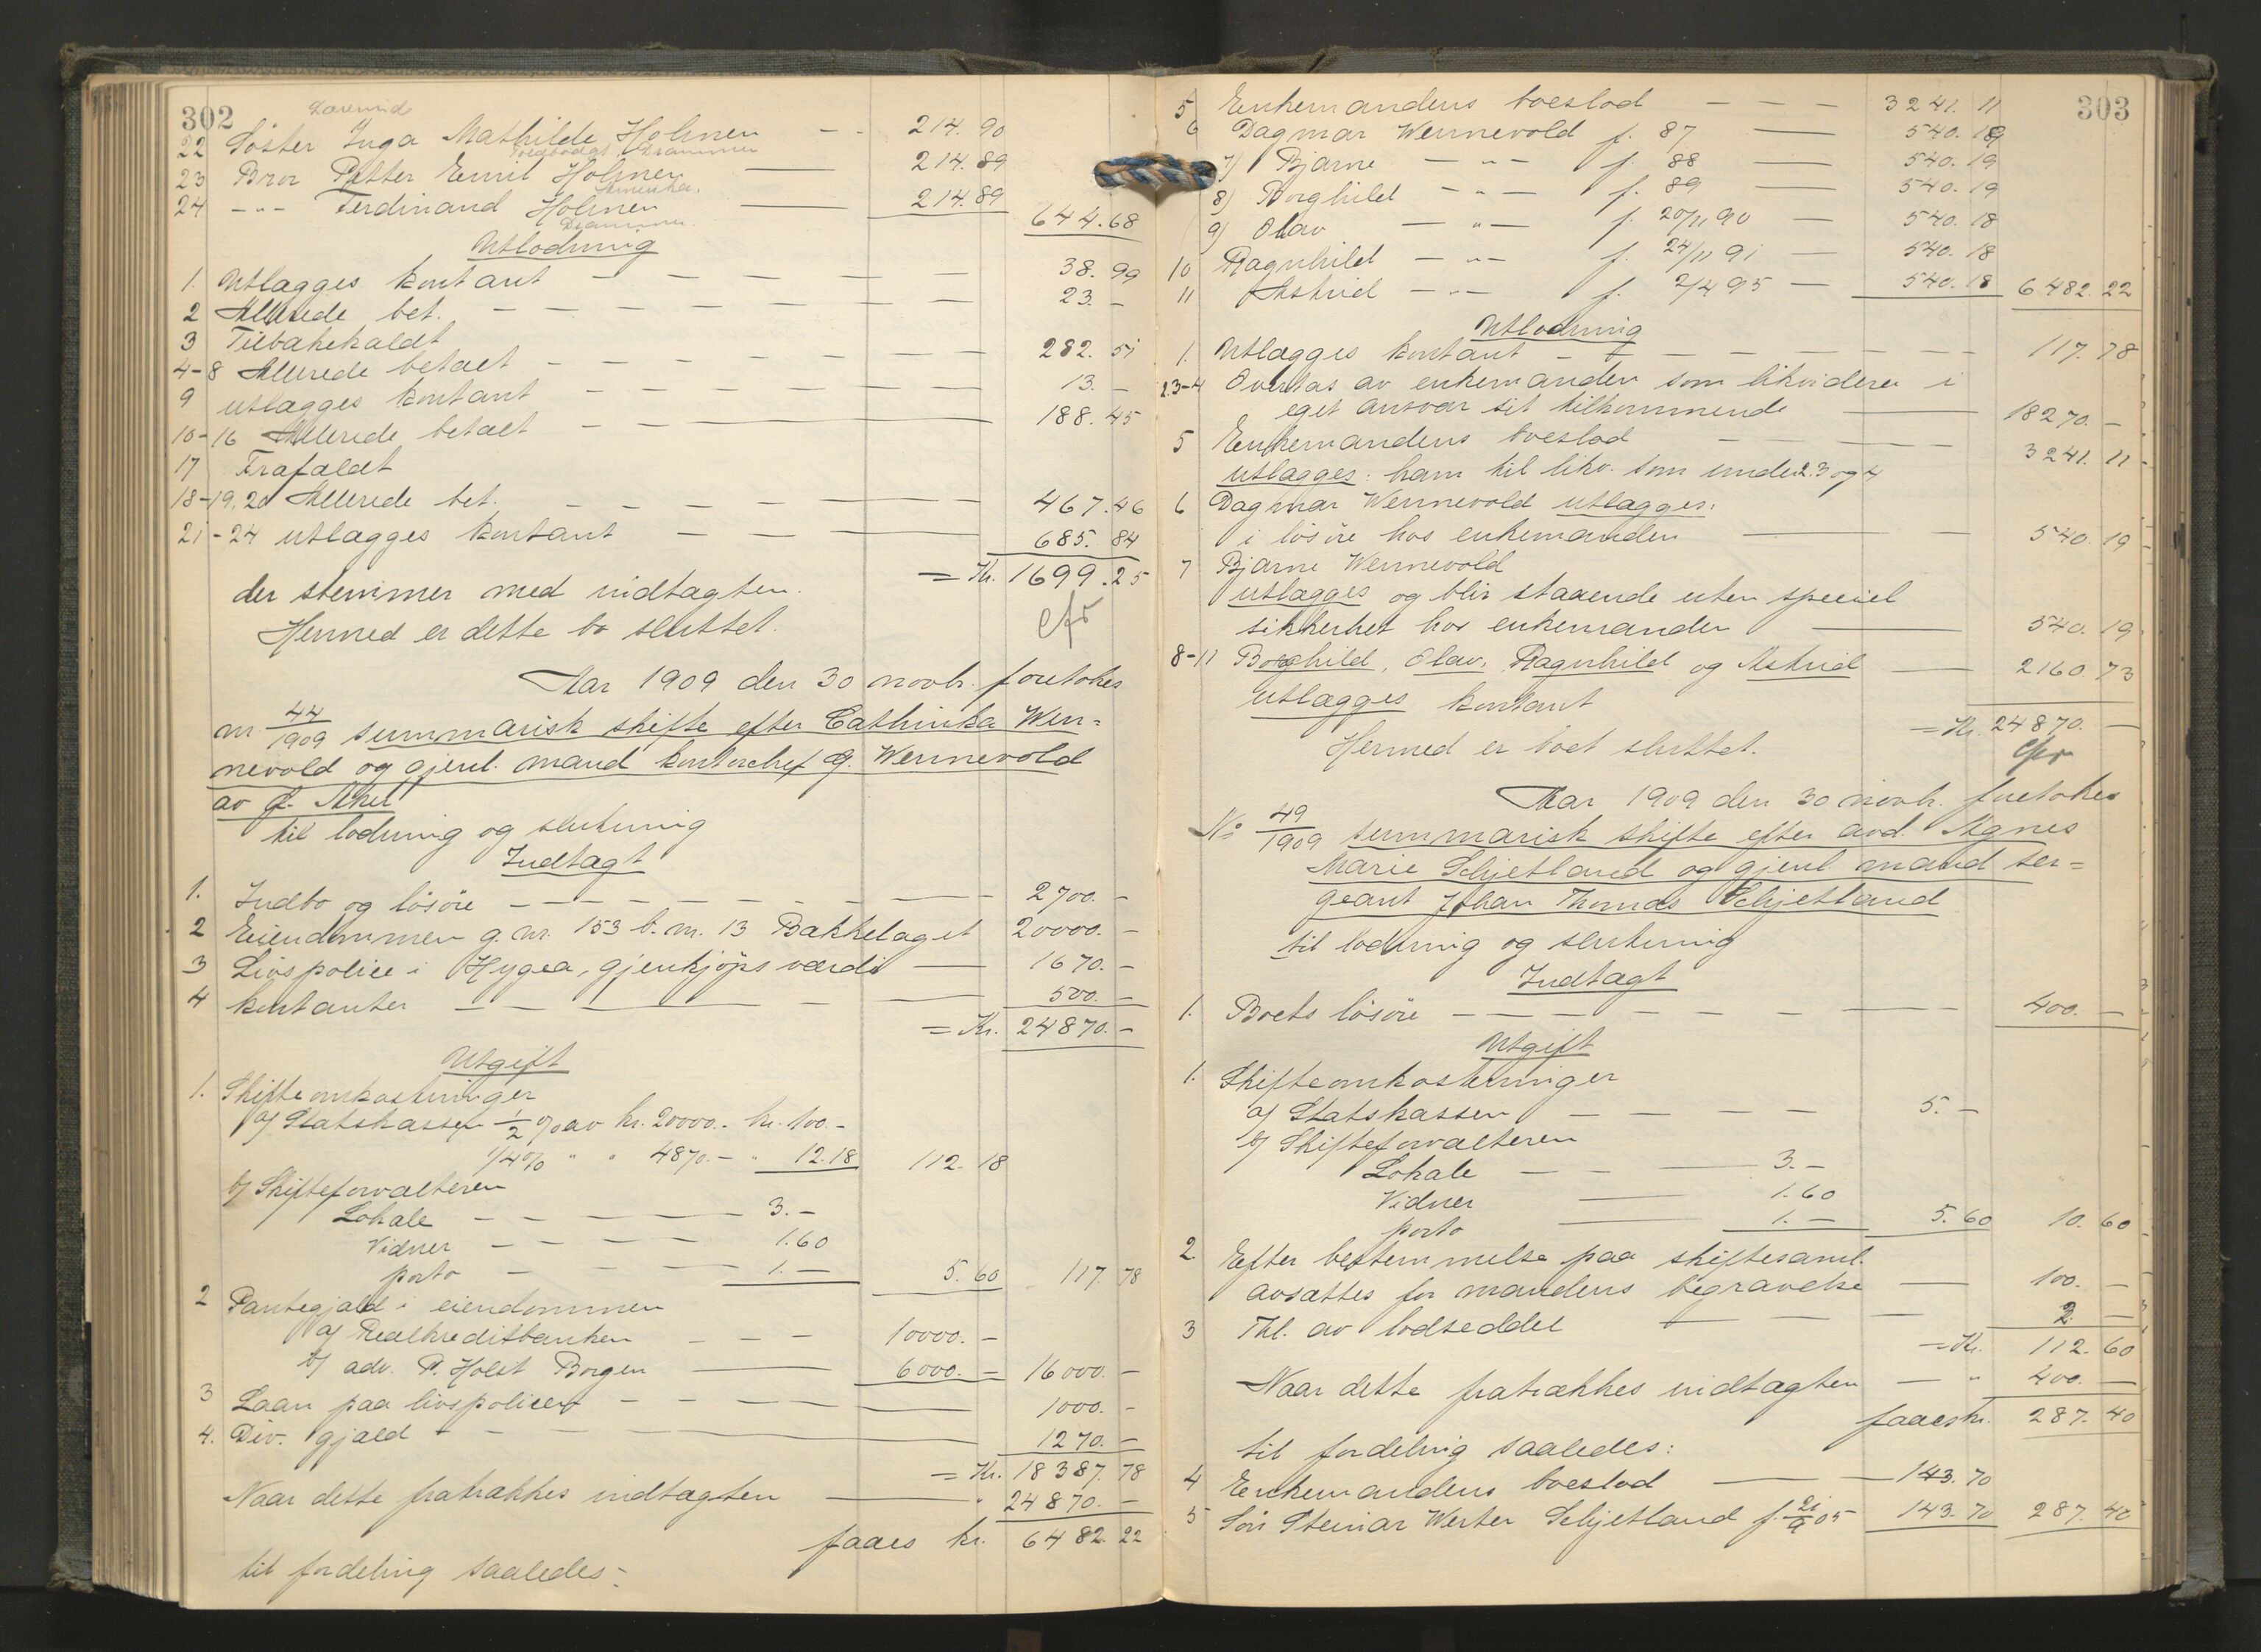 302
22 Söster Inga Mathilde Holmen - - 214. 90
23 Bror Petter Emil Holmen 214. 89
Amerika.
24 -"- Ferdinand Holmen 214. 89 644. 68
Drammen
Utlodning
1. Utlægges kontant 38. 99
2 Allerede bet. 23. -
3 Tilbakekaldt
4-8 Allerede betalt 282. 51
9 utlægges kontant 13. -
10-16 Allerede betalt 188. 45
17 Frafaldt
18-19, 20 Allerede bet. 467. 46
21-24 utlægges kontant 685. 84
= Kr. 1699. 25
der stemmer med indtægten.
Hermed er dette bo sluttet.
Aar 1909 den 30 novbr. foretokes
nr 44/1909 summarisk skifte efter Cathinka Wen=
nevold og gjenl. mand kontorchef G. Wennevold
av Ø. Aker
til lodning og slutning
Indtægt
1. Indbo og lösöre 2700. -
2 Eiendommen g. nr. 153 b. nr. 13 Bækkelaget 20000. -
3 Livspolice i Hygea, gjenkjöpsværdi 1670. -
4 kontanter 500. -
= Kr. 24870. -
Utgift
1. Skifteomkostninger
a) Statskassen 1/2 % av kr. 20000.- kr. 100. -
1/4 % " " 4870. - " 12.18 112. 18
b) Skifteforvalteren
Lokale 3. -
Vidner 1.60
porto 1. - 5. 60 117. 78
2 Pantegjæld i eiendommen
a) Realkreditbanken 10000. -
b) adv. P. Holst Borgen 6000. - 16000. -
3 Laan paa livspolicen 1000. -
4. Div. gjæld 1270. -
= Kr. 18387. 78
Naar dette fratrækkes indtægten " 24870. -
faaes kr. 6482. 22
til fordeling saaledes:
303
5 Enkemandens boeslod 3241. 11
6 Dagmar Wennevold f. 87 540. 19
7) Bjarne -"- f. 88 540. 19
8) Borghild -"- f. 89 540. 19
9) Olav -"- f. 20/11 90 540. 18
10 Ragnhild -"- f. 24/11 91 540. 18
11 Astrid -"- f. 2/4 95 540. 18 6482. 22
Utlodning
1. Utlægges kontant 117. 78
2.3-4 Overtas av enkemanden som likviderer i
eget ansvar sit tilkommende 18270. -
5 Enkemandens boeslod 3241. 11
utlægges: ham til likv. som under 2. 3 og 4
6 Dagmar Wennevold utlægges:
i lösöre hos enkemanden 540. 19
7 Bjarne Wennevold
utlægges og blir staaende uten speciel
sikkerhet hos enkemanden 540. 19
8-11 Borghild, Olav, Ragnhild og Astrid 2160. 73
utlægges kontant
= Kr. 24870. -
Hermed er boet sluttet.
Aar 1909 den 30 novbr. foretokes
No 49/1909 summarisk skifte efter avd. Agnes
Marie Schjetland og gjenl mand ser=
geant Johan Thomas Schjetland
til lodning og slutning
Indtægt
1. Boets lösöre 400. -
Utgift
1. Skifteomkostninger
a) Statskassen 5. -
b) Skifteforvalteren
Lokale 3. -
Vidner 1.60
porto 1. - 5. 60 10. 60
2 Efter bestemmelse paa skiftesaml.
avsættes for mandens begravelse 100. -
3 Thl. av lodseddel 2. -
= Kr. 112. 60
Naar dette fratrækkes indtægten " 400. -
faaes kr. 287. 40
til fordeling saaledes:
4 Enkemandens boeslod 143. 70
5 Sön Steinar Werter Schjetland f. 21/9 05 143. 70 287. 40